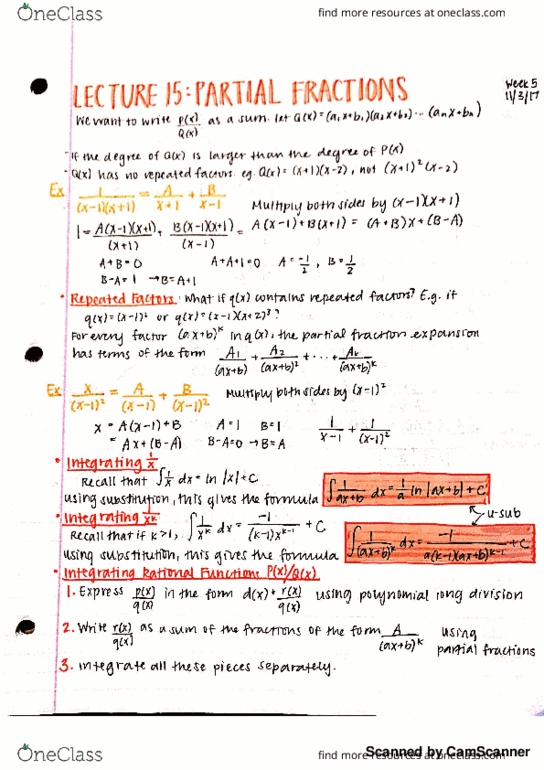 OneClass
find more resources at oneclass.com
LECTURE 15: PARTIAL FRACTIONS
Week 5
11/3/17
We want to write P(x)/Q(x) as a sum. Let Q(x)=(a₁x+b₁)(a₂x+b₂)...(aₙx+bₙ)
If the degree of Q(x) is larger than the degree of P(x)
Q(x) has no repeated factors. eg. Q(x)=(x+1)(x-2), not (x+1)²(x-2)
Ex 1/((x-1)(x+1)) = A/(x+1) + B/(x-1) Multiply both sides by (x-1)(x+1)
1 = A(x-1)(x+1)/(x+1) + B(x-1)(x+1)/(x-1) = A(x-1)+B(x+1) = (A+B)x+(B-A)
A+B=0 A+A+1=0 A=-1/2, B=1/2
B-A=1 →B=A+1
• Repeated Factors: What if q(x) contains repeated factors? E.g. if
q(x)=(x-1)² or q(x)=(x-1)(x+2)³?
For every factor (ax+b)ᵏ in q(x), the partial fraction expansion
has terms of the form A₁/(ax+b) + A₂/(ax+b)² + ... + Aₖ/(ax+b)ᵏ
Ex x/(x-1)² = A/(x-1) + B/(x-1)² Multiply both sides by (x-1)²
x = A(x-1)+B A=1 B=1 1/(x-1) + 1/(x-1)²
= Ax+(B-A) B-A=0 →B=A
• Integrating 1/x
Recall that ∫1/x dx = ln|x|+C
using substitution, this gives the formula ∫1/(ax+b) dx = 1/a ln|ax+b|+C
u-sub
• Integrating 1/xᵏ
Recall that if k>1, ∫1/xᵏ dx = -1/((k-1)xᵏ⁻¹) + C
using substitution, this gives the formula ∫1/(ax+b)ᵏ dx = -1/(a(k-1)(ax+b)ᵏ⁻¹) + C
• Integrating Rational Functions P(x)/Q(x)
1. Express p(x)/q(x) in the form d(x)+r(x)/q(x) using polynomial long division
2. Write r(x)/q(x) as a sum of the fractions of the form A/(ax+b)ᵏ using
partial fractions
3. Integrate all these pieces separately.
OneClass
find more resources at oneclass.com
Scanned by CamScanner